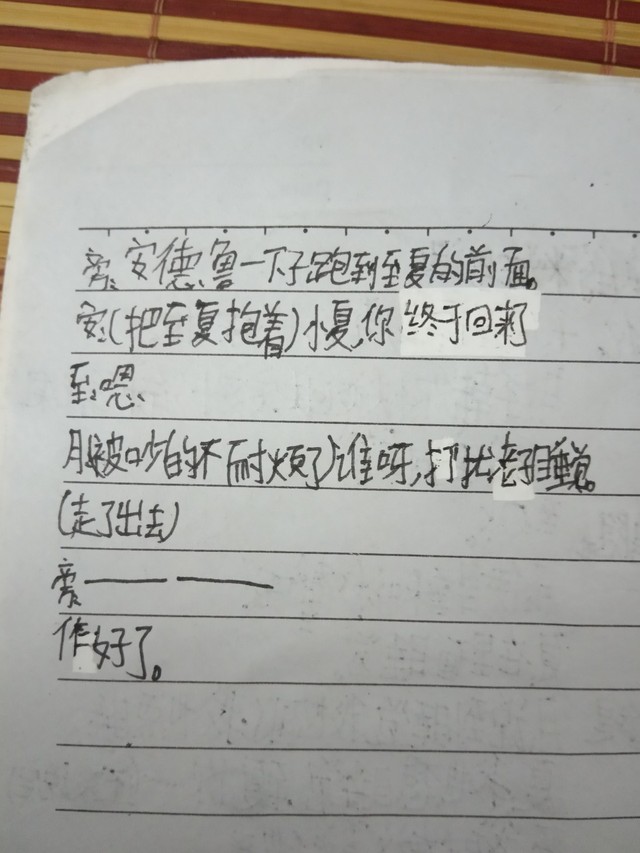 旁:安德鲁一下子跑到至夏的前面。
安:(把至夏抱着)小夏,你终于回来了
至:嗯
月:(被吵的不耐烦了)谁呀,打扰老子睡觉。
(走了出去)
旁:—— ——
作:好了。